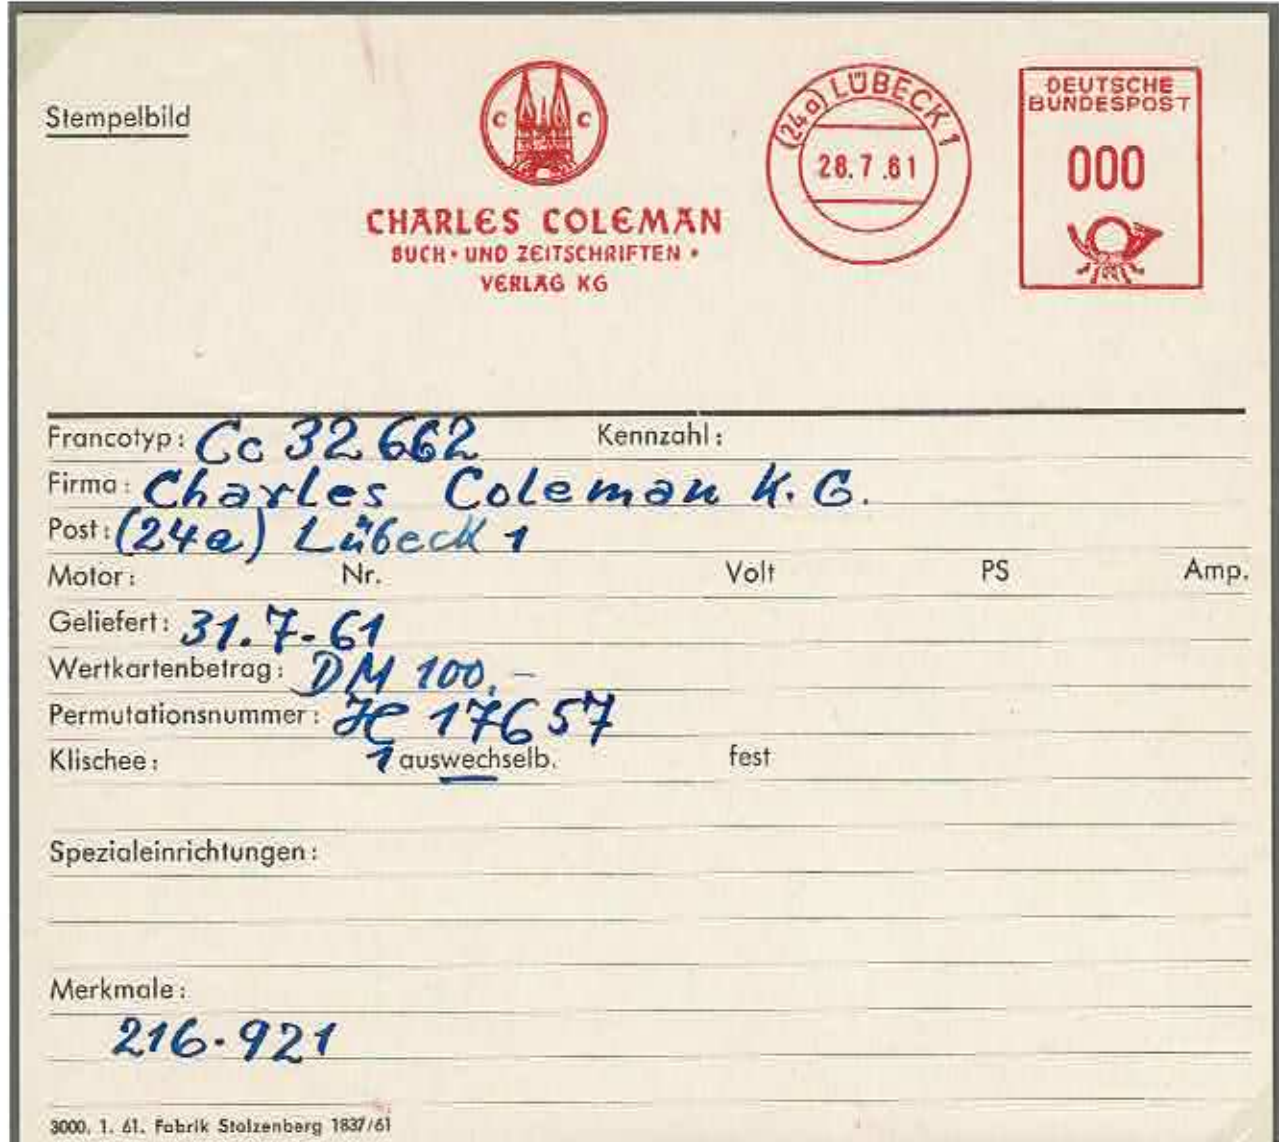 Stempelbild
C C
CHARLES COLEMAN
BUCH- UND ZEITSCHRIFTEN-
VERLAG KG
(24a) LÜBECK 1
28.7.61
DEUTSCHE
BUNDESPOST
000
Francotyp: Cc 32 662 Kennzahl:
Firma: Charles Coleman K.G.
Post: (24a) Lübeck 1
Motor: Nr. Volt PS Amp.
Geliefert: 31.7.61
Wertkartenbetrag: DM 100,-
Permutationsnummer: 17657
Klischee: 1 auswechselb. fest
Spezialeinrichtungen:
Merkmale:
216.921
3000. 1. 61. Fabrik Stolzenberg 1837/61